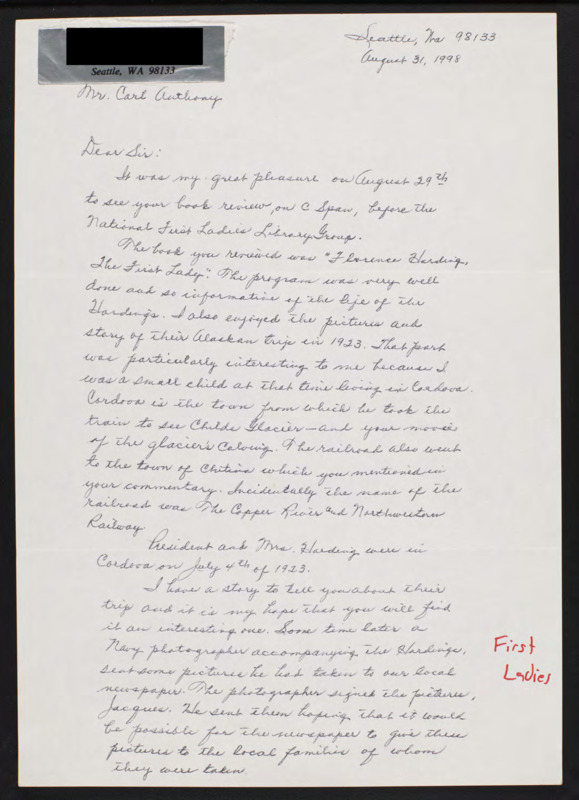 Seattle, WA 98133
Seattle, Wa 98133
August 31, 1998
Mr. Carl Anthony
Dear Sir:
It was my great pleasure on August 29th
to see your book review, on C Span, before the
National First Ladies Library Group.
The book you reviewed was "Florence Harding,
The First Lady". The program was very well
done and so informative of the life of the
Hardings. I also enjoyed the pictures and
story of their Alaskan trip in 1923. That part
was particularly interesting to me because I
was a small child at that time living in Cordova.
Cordova is the town from which he took the
train to see Childs Glacier - and your movie
of the glacier's calving. The railroad also went
to the town of Chitina which you mentioned in
your commentary. Incidentally the name of the
railroad was The Copper River and Northwestern
Railway.
President and Mrs. Harding were in
Cordova on July 4th of 1923.
I have a story to tell you about their
trip and it is my hope that you will find
it an interesting one. Some time later a
Navy photographer accompanying the Hardings,
sent some pictures he had taken to our local
newspaper. The photographer signed the pictures,
Jacques. He sent them hoping that it would
be possible for the newspaper to give these
pictures to the local families of whom
they were taken.
First
Ladies